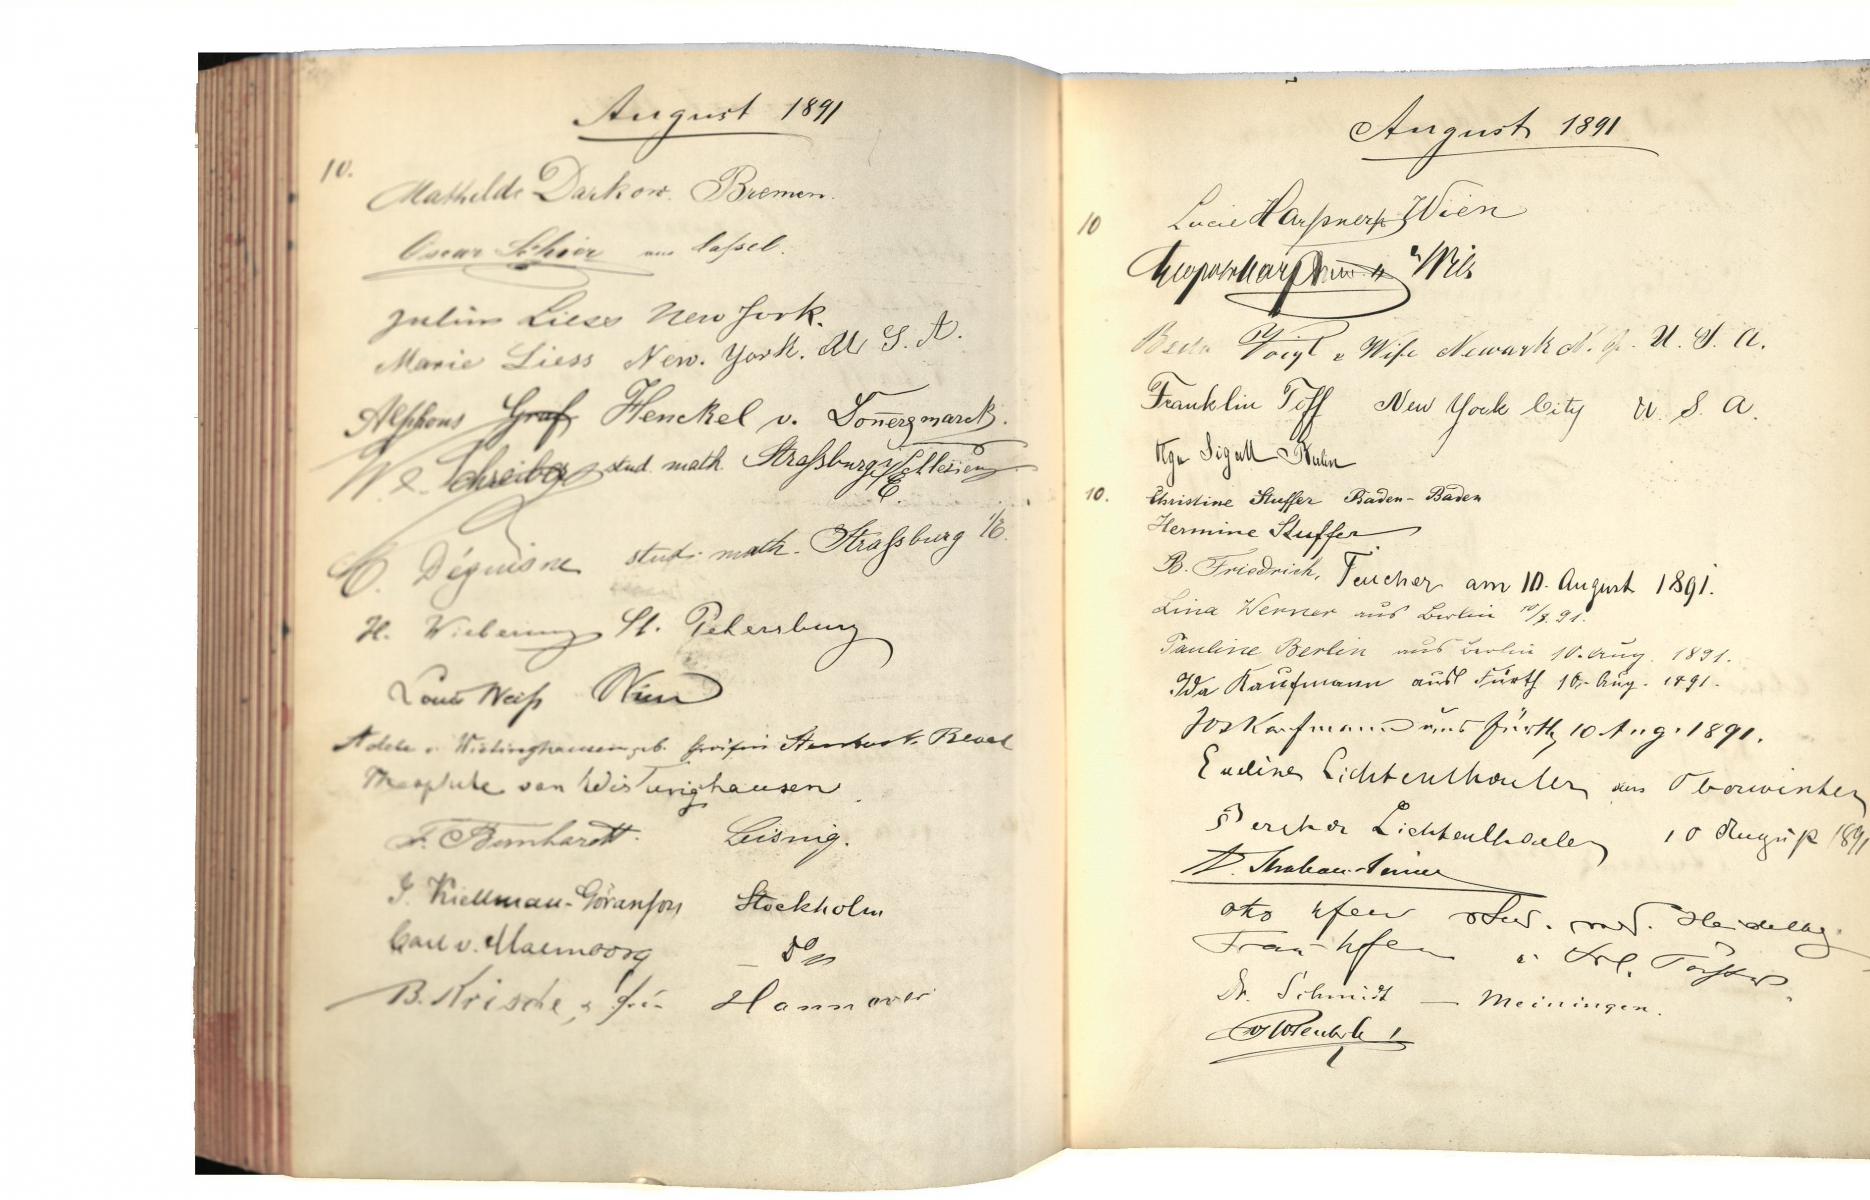 August 1891
10.
Mathilde Darkow. Bremen.
Oscar Schier aus Cassel.
Julius Liess New York.
Marie Liess New. York. U. S. A.
Alphons Graf Henckel v. Donnersmarck.
W. Schreiber stud. math. Straßburg i/E.
Schlesien
C. Déguisne stud. math. Straßburg i/E.
H. St. Petersburg
Louis Weiß Wien
Adele v. Wistinghausen geb. Reval
Theophile von Wistinghausen
F. Bernhardt. Leisnig.
J. Kjellman-Göranson Stockholm
Carl v. – Do
B. Krische, & Frau Hannover
August 1891
10
Lucie Wien
Wien
Voigt & Wife Newark N. J. U. S. A.
Franklin Toff New York City U. S. A.
Olga Sigall Berlin
10. Christine Stuffer Baden-Baden
Hermine Stuffer
B. Friedrich, Teucher am 10. August 1891.
Lina Werner aus Berlin 10/8 91.
Pauline Berlin aus Berlin 10. Aug. 1891.
Ida Kaufmann aus Fürth 10. Aug. 1891.
Jos Kaufmann aus Fürth, 10 Aug. 1891.
Lichtenthaeler aus Oberwinter
Lichtenthaeler 10 August 1891
Otto stud. med. Heidelbg.
Frau u. Frl.
Dr. Schmidt – Meiningen.